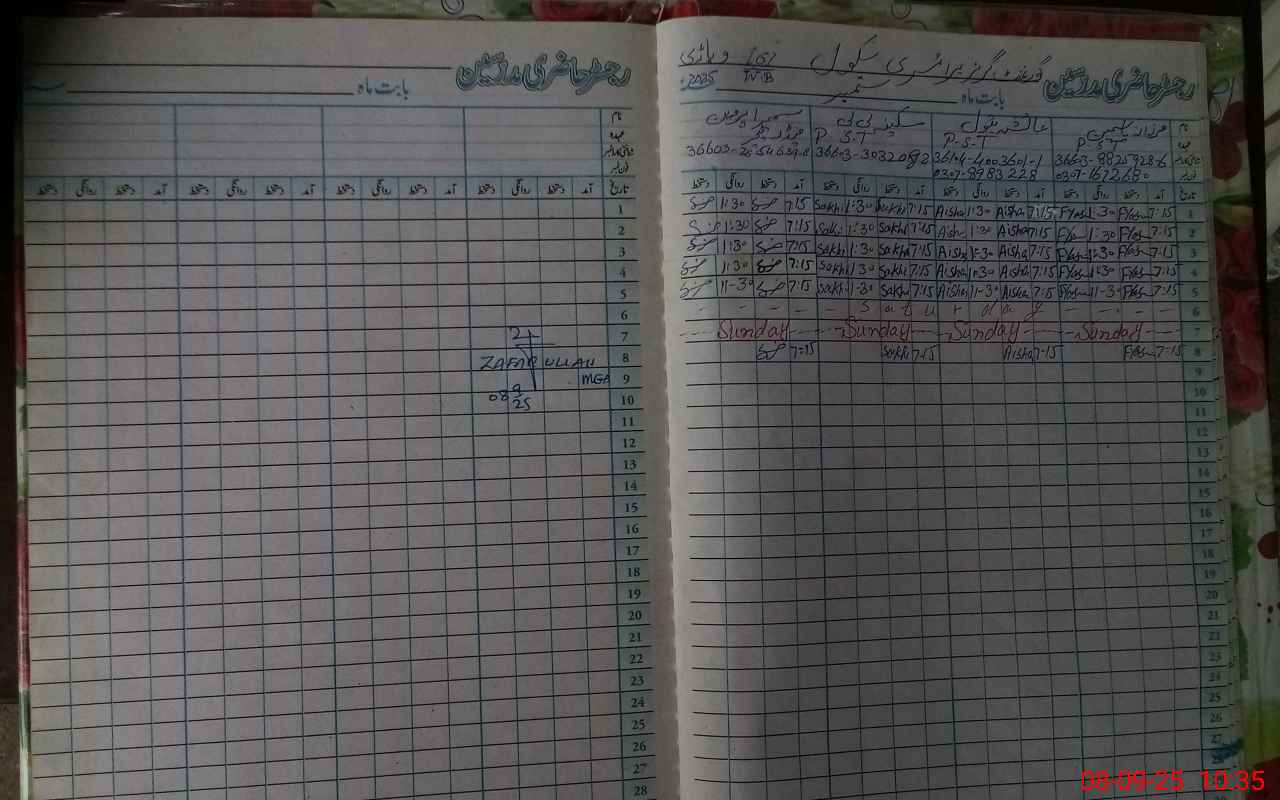 رجسٹر حاضری مدرسین
بابت ماہ سنہ
نام
عہدہ
شناختی کارڈ نمبر
فون نمبر
تاریخ آمد دستخط روانگی دستخط آمد دستخط روانگی دستخط آمد دستخط روانگی دستخط آمد دستخط روانگی دستخط
1
2
3
4
5
6
7
2
8 ZAFAR ULLAH
9 MGA
10 08 9 25
11
12
13
14
15
16
17
18
19
20
21
22
23
24
25
26
27
28
رجسٹر حاضری مدرسین گورنمنٹ گرلز پرائمری سکول 167 وہاڑی
W.B
بابت ماہ ستمبر 2025
نام فرزانہ یاسمین عائشہ بتول سکینہ بی بی سمیرا پروین
عہدہ P.S.T P-S-T P-S-T
شناختی کارڈ نمبر 36603-8825928-6 36104-4003601-1
فون نمبر 0307-1672680 0307-8983228
تاریخ آمد دستخط روانگی دستخط آمد دستخط روانگی دستخط آمد دستخط روانگی دستخط آمد دستخط روانگی دستخط
1 7:15 1:30 7:15 Aisha 1:30 Aisha 7:15 Sakhi 1:30 Sakhi 7:15 1:30
2 7:15 1:30 7:15 Aisha 1:30 Aish 7:15 Sakhi 1:30 Sakhi 7:15 1:30
3 7:15 1:30 7:15 Aisha 1:30 Aisha 7:15 Sakhi 1:30 Sakhi 7:15 1:30
4 7:15 1:30 7:15 Aisha 1:30 Aisha 7:15 Sakhi 1:30 Sakhi 7:15 11:30
5 7:15 11-30 7:15 Aisha 11-30 Aisha 7:15 Sakhi 11:30 Sakhi 7:15 11-30
6 Saturday
7 Sunday Sunday Sunday Sunday
8 7:15 7-15 Aisha 7:15 Sakhi 7:15
9
10
11
12
13
14
15
16
17
18
19
20
21
22
23
24
25
26
27
08-09-25 10.35